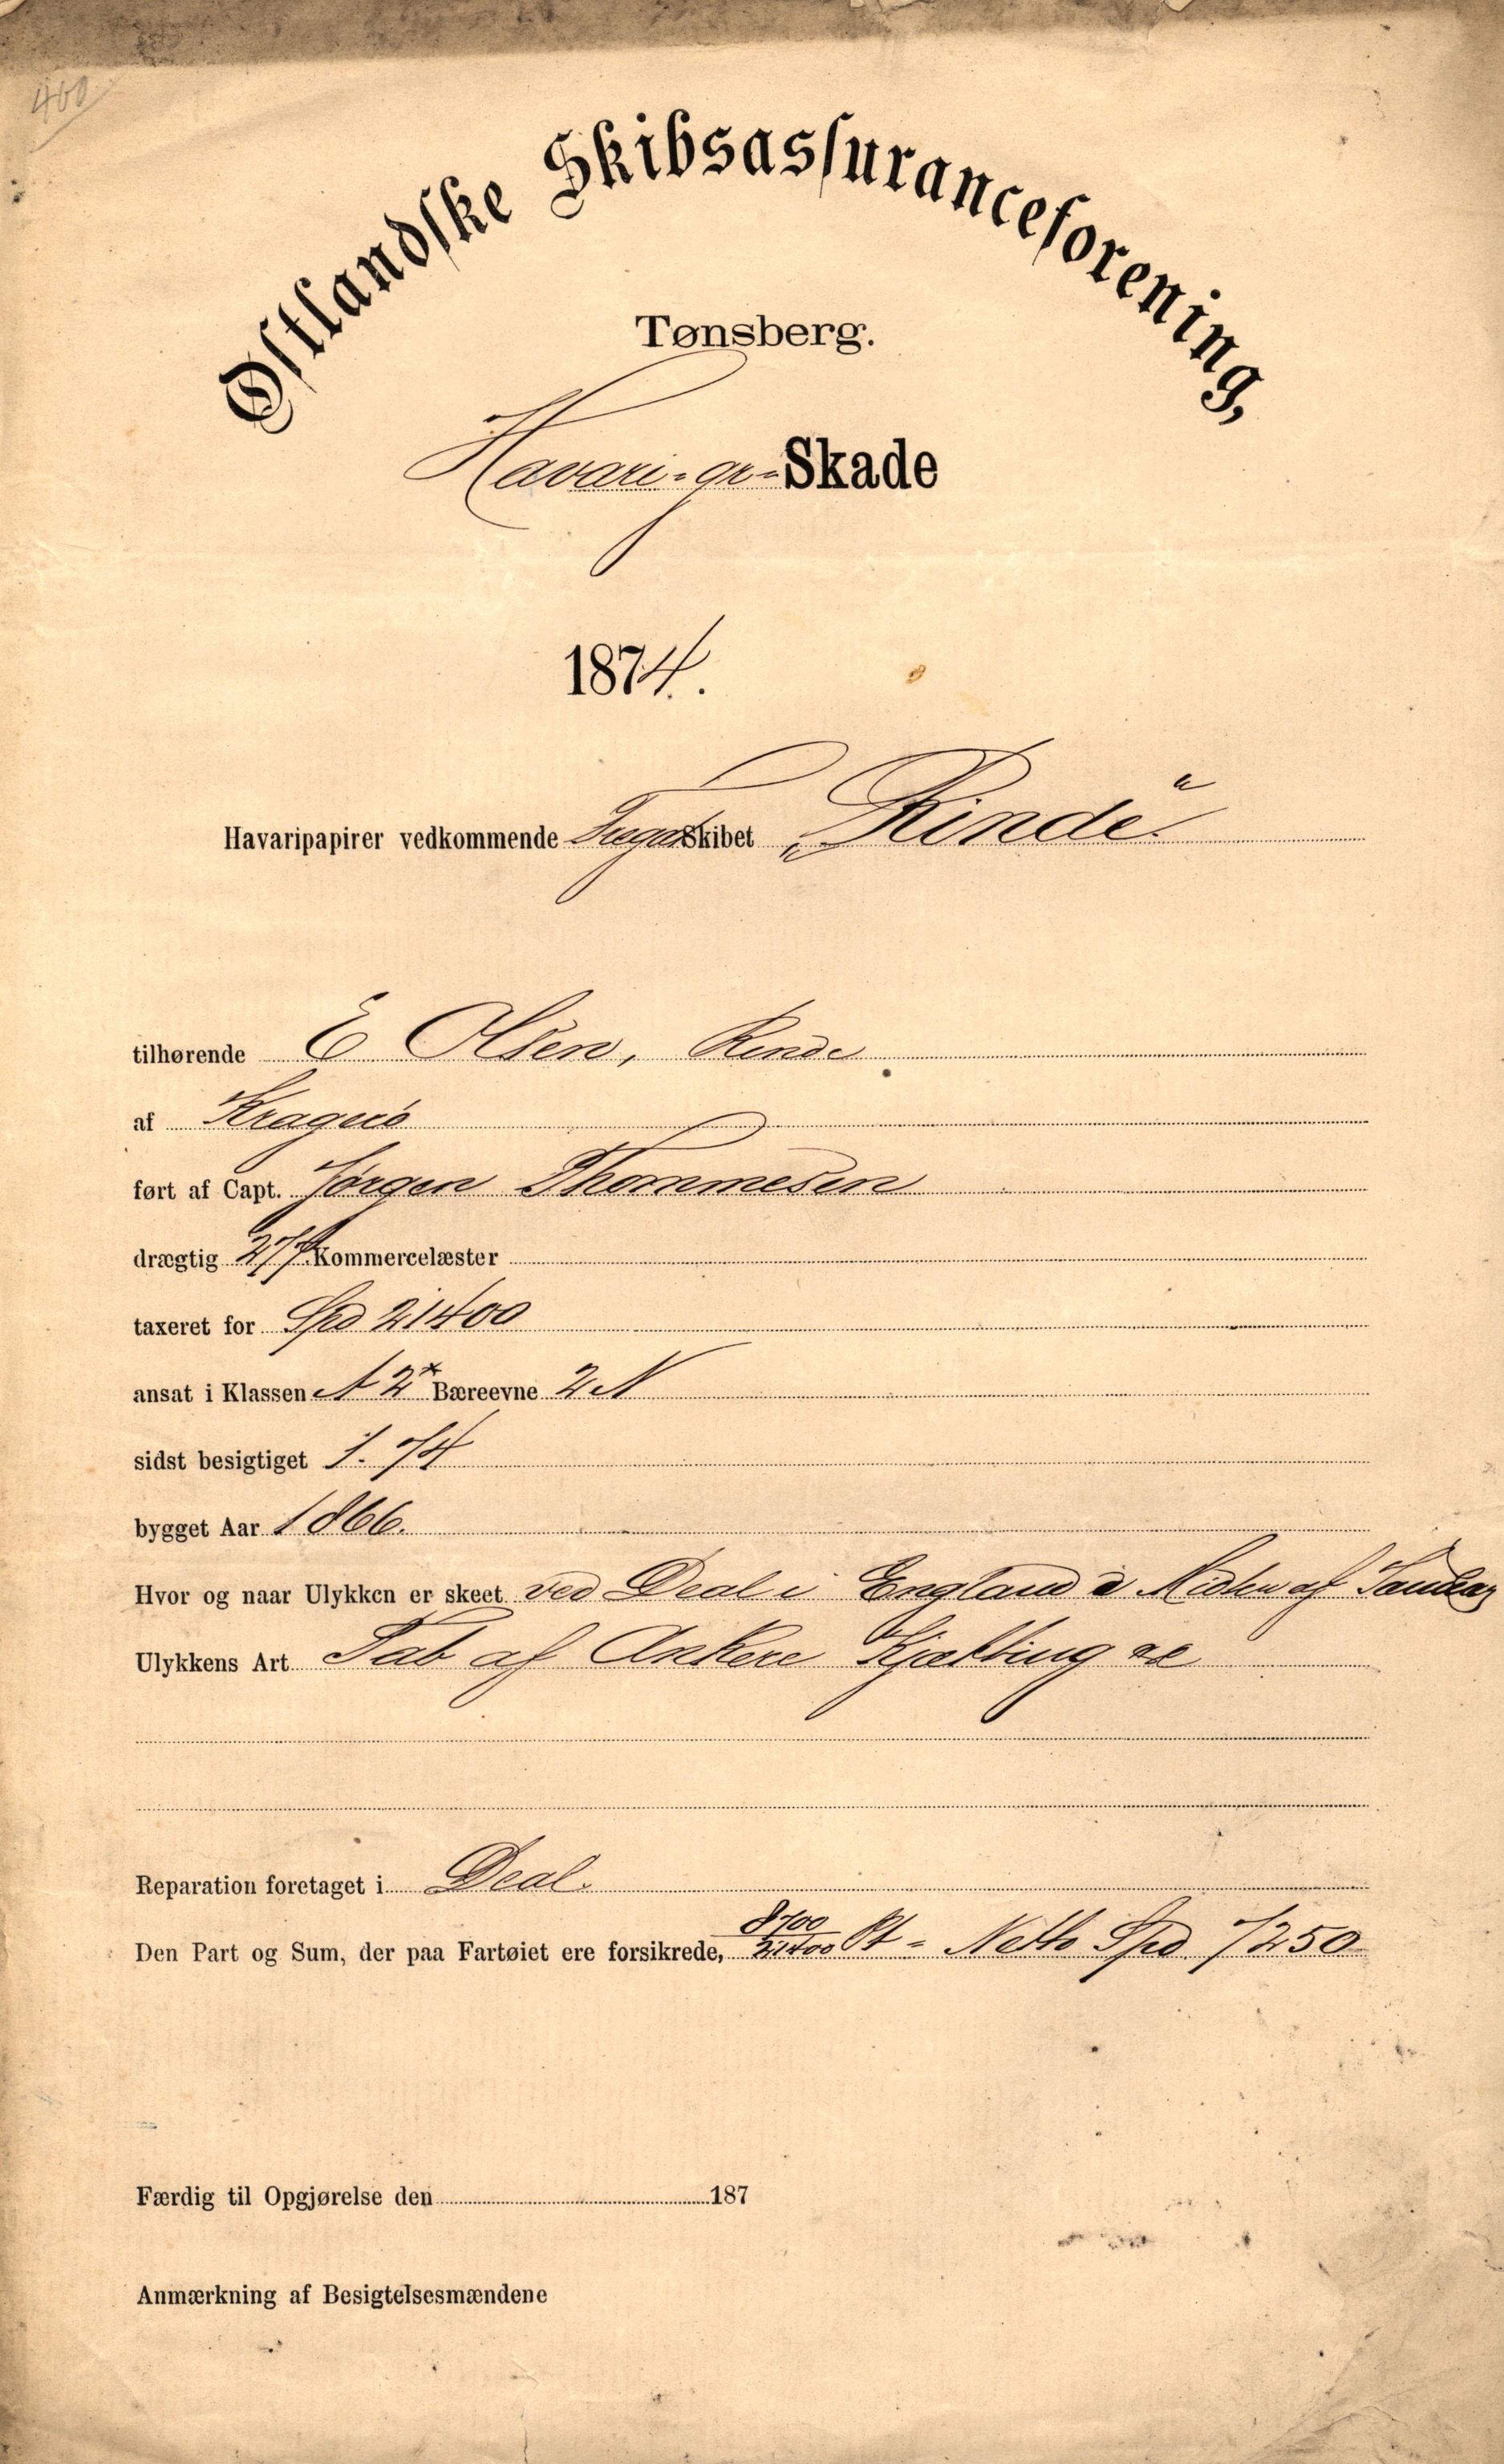 400
Østlandske Skibsassuranceforening,
Tønsberg.
Havari-gr-Skade
1874.
Havaripapirer vedkommende Fregatskibet „Rinde“
tilhørende E Olsen, Rinde
af Kragerö
ført af Capt. Jørgen Thommesen
drægtig 277 Kommercelæster
taxeret for Spd 21400
ansat i Klassen A 2* Bæreevne 2 N
sidst besigtiget 1. 74
bygget Aar 1866.
Hvor og naar Ulykken er skeet ved Deal i England i Midten af
Ulykkens Art Tab af Ankere Kjætting
Reparation foretaget i Deal.
Den Part og Sum, der paa Fartøiet ere forsikrede, 8700/21400 Pt = Netto Spd 7250
Færdig til Opgjørelse den 187
Anmærkning af Besigtelsesmændene